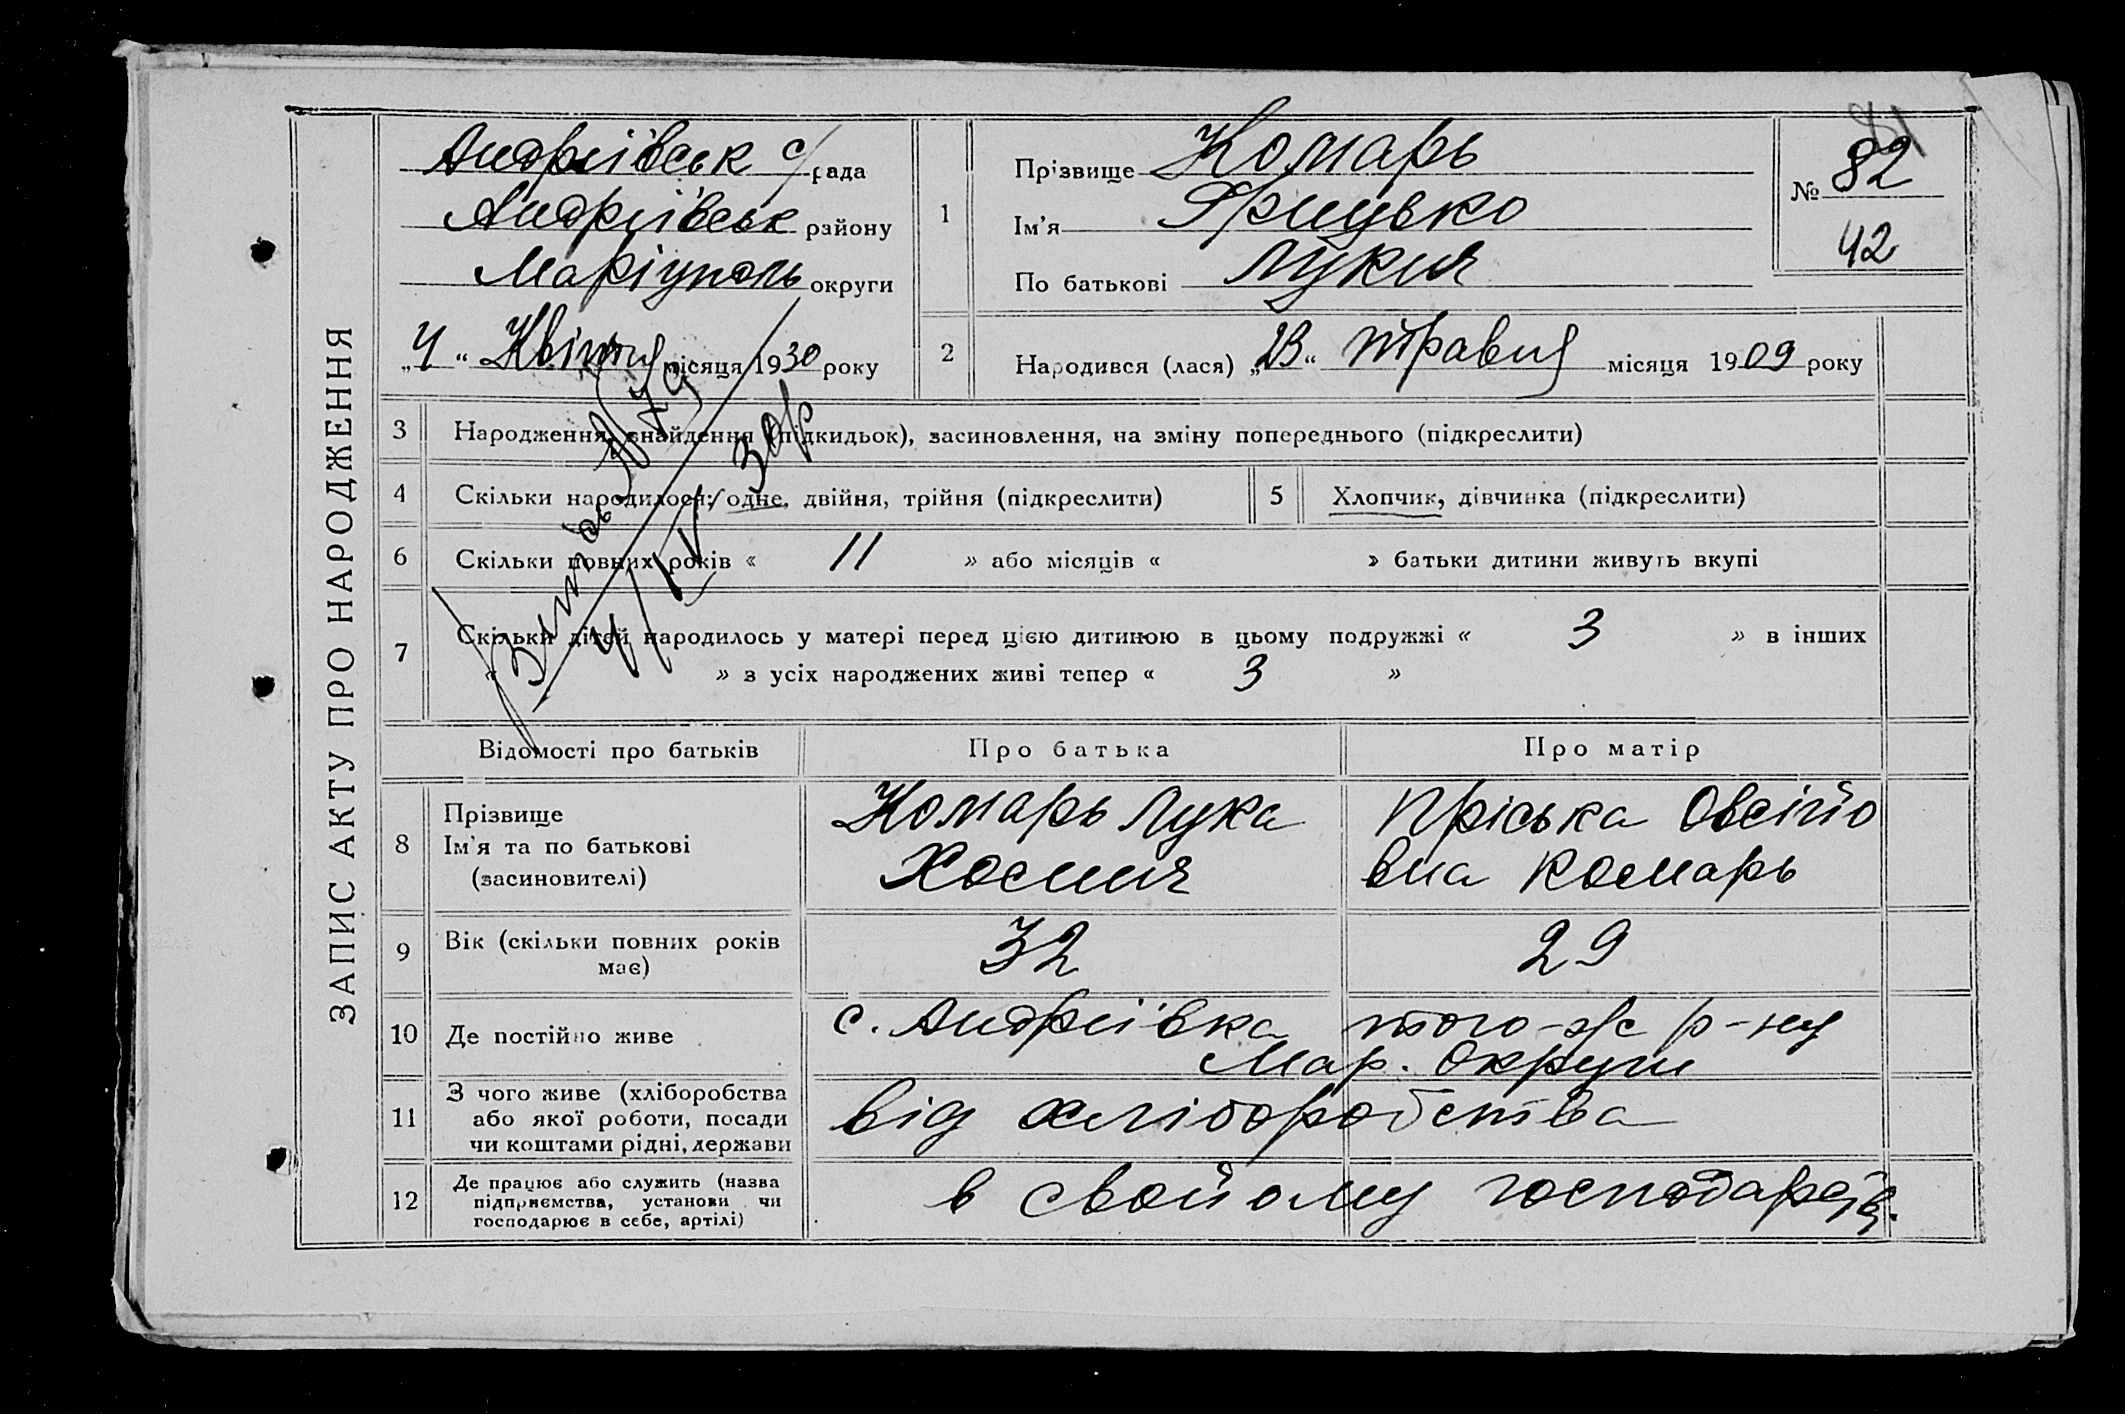 ЗАПИС АКТУ ПРО НАРОДЖЕННЯ
Андріївськ с/рада
Андріївськ району
Маріуполь округи
„4“ Квітня місяця 1930 року
1
Прізвище Комарь
Ім'я Грицько
По батькові Лукич
№ 82
42
2
Народився (лася) „23“ травня місяця 1909 року
3 Народження, знайдення (підкидьок), засиновлення, на зміну попереднього (підкреслити)
4 Скільки народилося: одне, двійня, трійня (підкреслити)
5 Хлопчик, дівчинка (підкреслити)
6 Скільки повних років « 11 » або місяців « » батьки дитини живуть вкупі
7 Скільки дітей народилось у матері перед цією дитиною в цьому подружжі « 3 » в інших
« » з усіх народжених живі тепер « 3 »
4/IV 30р
Відомості про батьків Про батька Про матір
8 Прізвище
Ім'я та по батькові
(засиновителі)
Комарь Лука
Хомич
Пріська Овсійо
вна Комарь
9 Вік (скільки повних років
має)
32
29
10 Де постійно живе
с. Андріївка того-ж р-ну
Мар. Округи
11 З чого живе (хліборобства
або якої роботи, посади
чи коштами рідні, держави
від хліборобства
12 Де працює або служить (назва
підприємства, установи чи
господарює в себе, артілі)
в свойому господарстві.